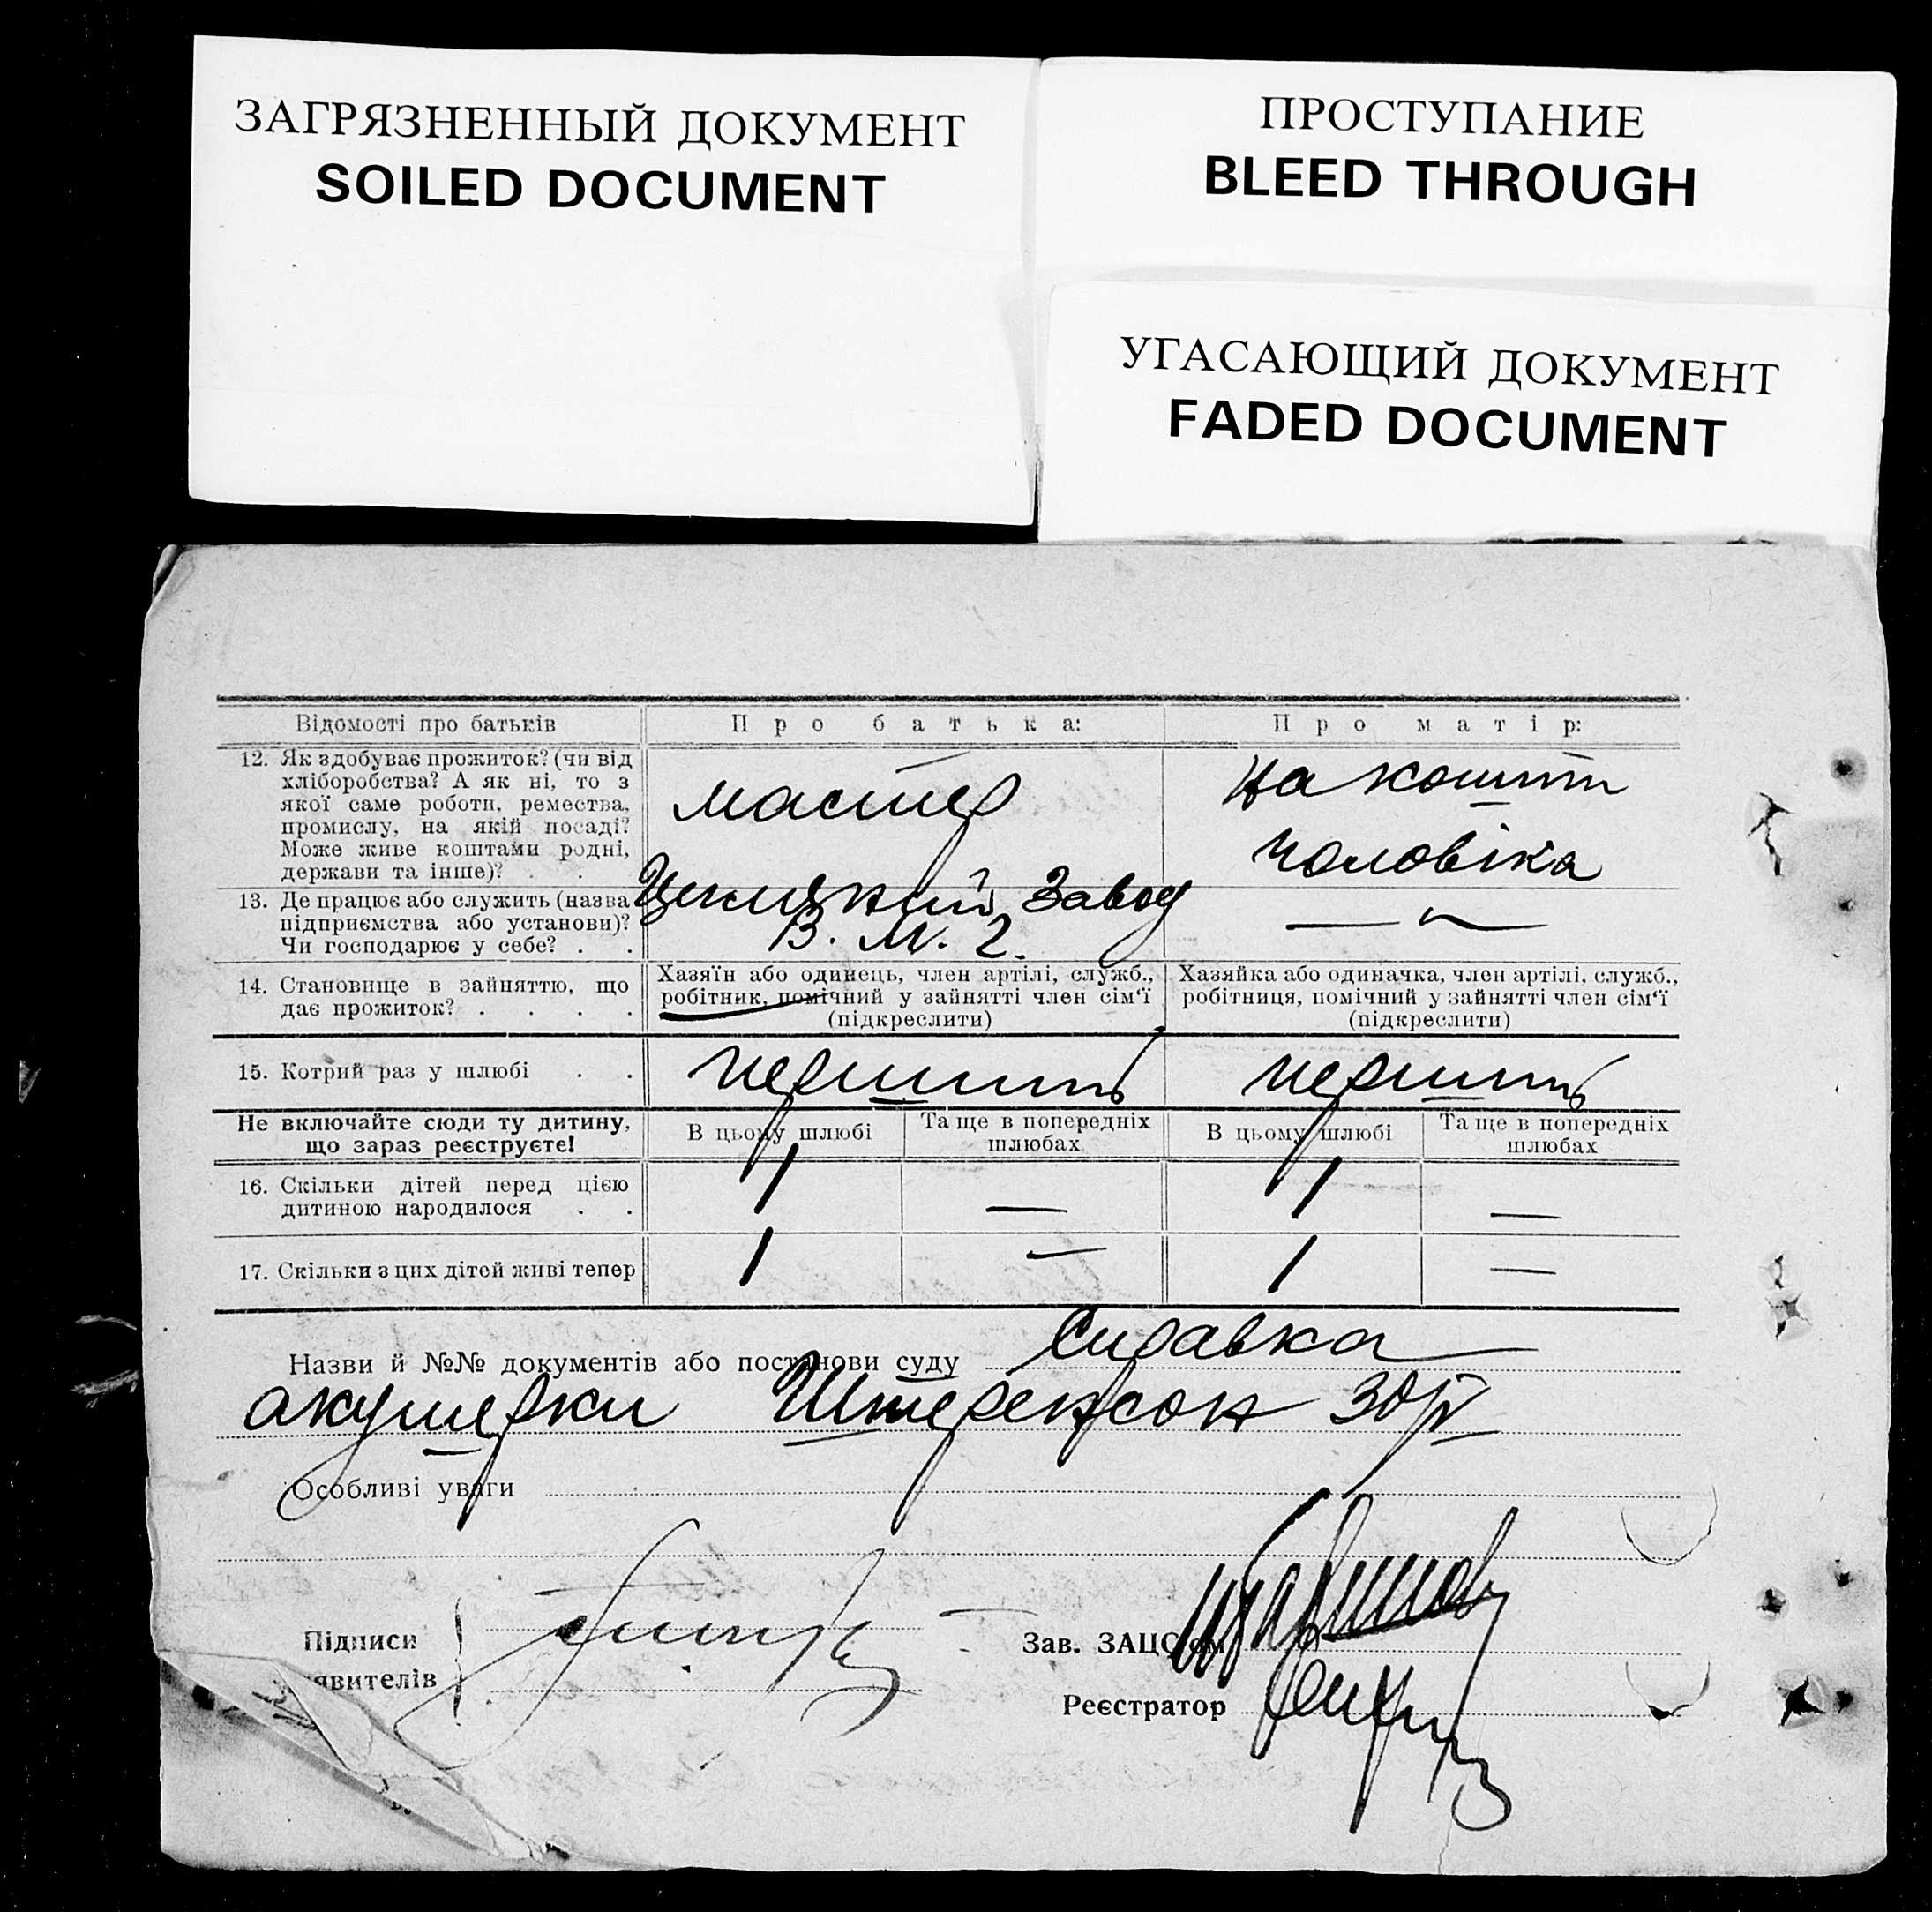 ЗАГРЯЗНЕННЫЙ ДОКУМЕНТ
SOILED DOCUMENT
ПРОСТУПАНИЕ
BLEED THROUGH
УГАСАЮЩИЙ ДОКУМЕНТ
FADED DOCUMENT
Відомості про батьків
Про батька:
Про матір:
12. Як здобуває прожиток? (чи від
хліборобства? А як ні, то з
якої саме роботи, ремества,
промислу, на якій посаді?
Може живе коштами родні,
держави та інше)? . .
мастер
на кошти
чоловіка
13. Де працює або служить (назва
підприємства або установи)?
Чи господарює у себе? . .
Завод
В. М. 2.
— " —
14. Становище в зайняттю, що
дає прожиток? . . . .
Хазяїн або одинець, член артілі, служб.,
робітник, помічний у зайнятті член сім'ї
(підкреслити)
Хазяйка або одиначка, член артілі, служб.,
робітниця, помічний у зайнятті член сім'ї
(підкреслити)
15. Котрий раз у шлюбі . .
перший
перший
Не включайте сюди ту дитину,
що зараз реєструєте!
В цьому шлюбі
Та ще в попередніх
шлюбах
В цьому шлюбі
Та ще в попередніх
шлюбах
16. Скільки дітей перед цією
дитиною народилося . .
1
—
1
—
17. Скільки з цих дітей живі тепер
1
—
1
—
Назви й №№ документів або постанови суду Справка
акушерки
Особливі уваги
Підписи
явителів
Зав. ЗАЦС'ом
Реєстратор